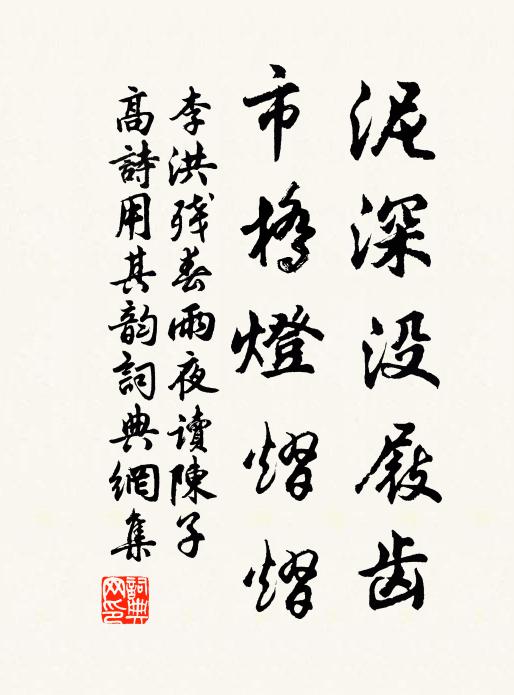 泥深没屐齿
市橋燈熠熠
李洪残春雨夜讀陳子
高詩用其韵詞典網集
詞典网印